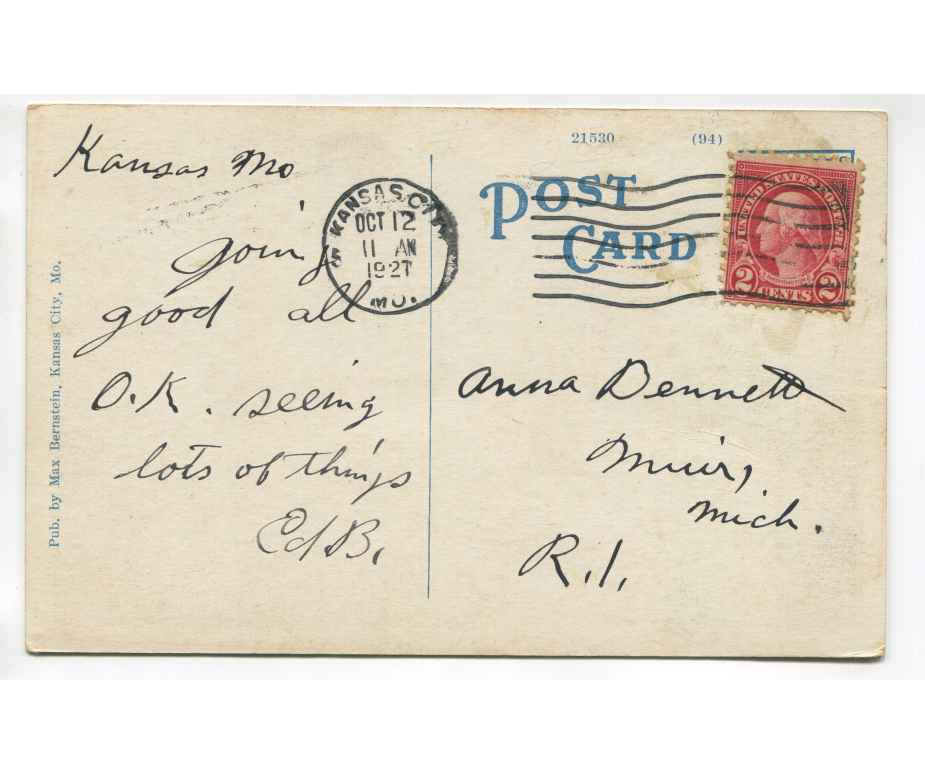 21530 (94)
POST
CARD
UNITED STATES POSTAGE
2 CENTS 2
KANSAS CITY
OCT 12
11 AM
1927
MO.
Kansas Mo
going
good all
O.K. seeing
lots of things
Ed B.
Anna Bennett
Muir,
Mich.
R.1.
Pub. by Max Bernstein, Kansas City, Mo.